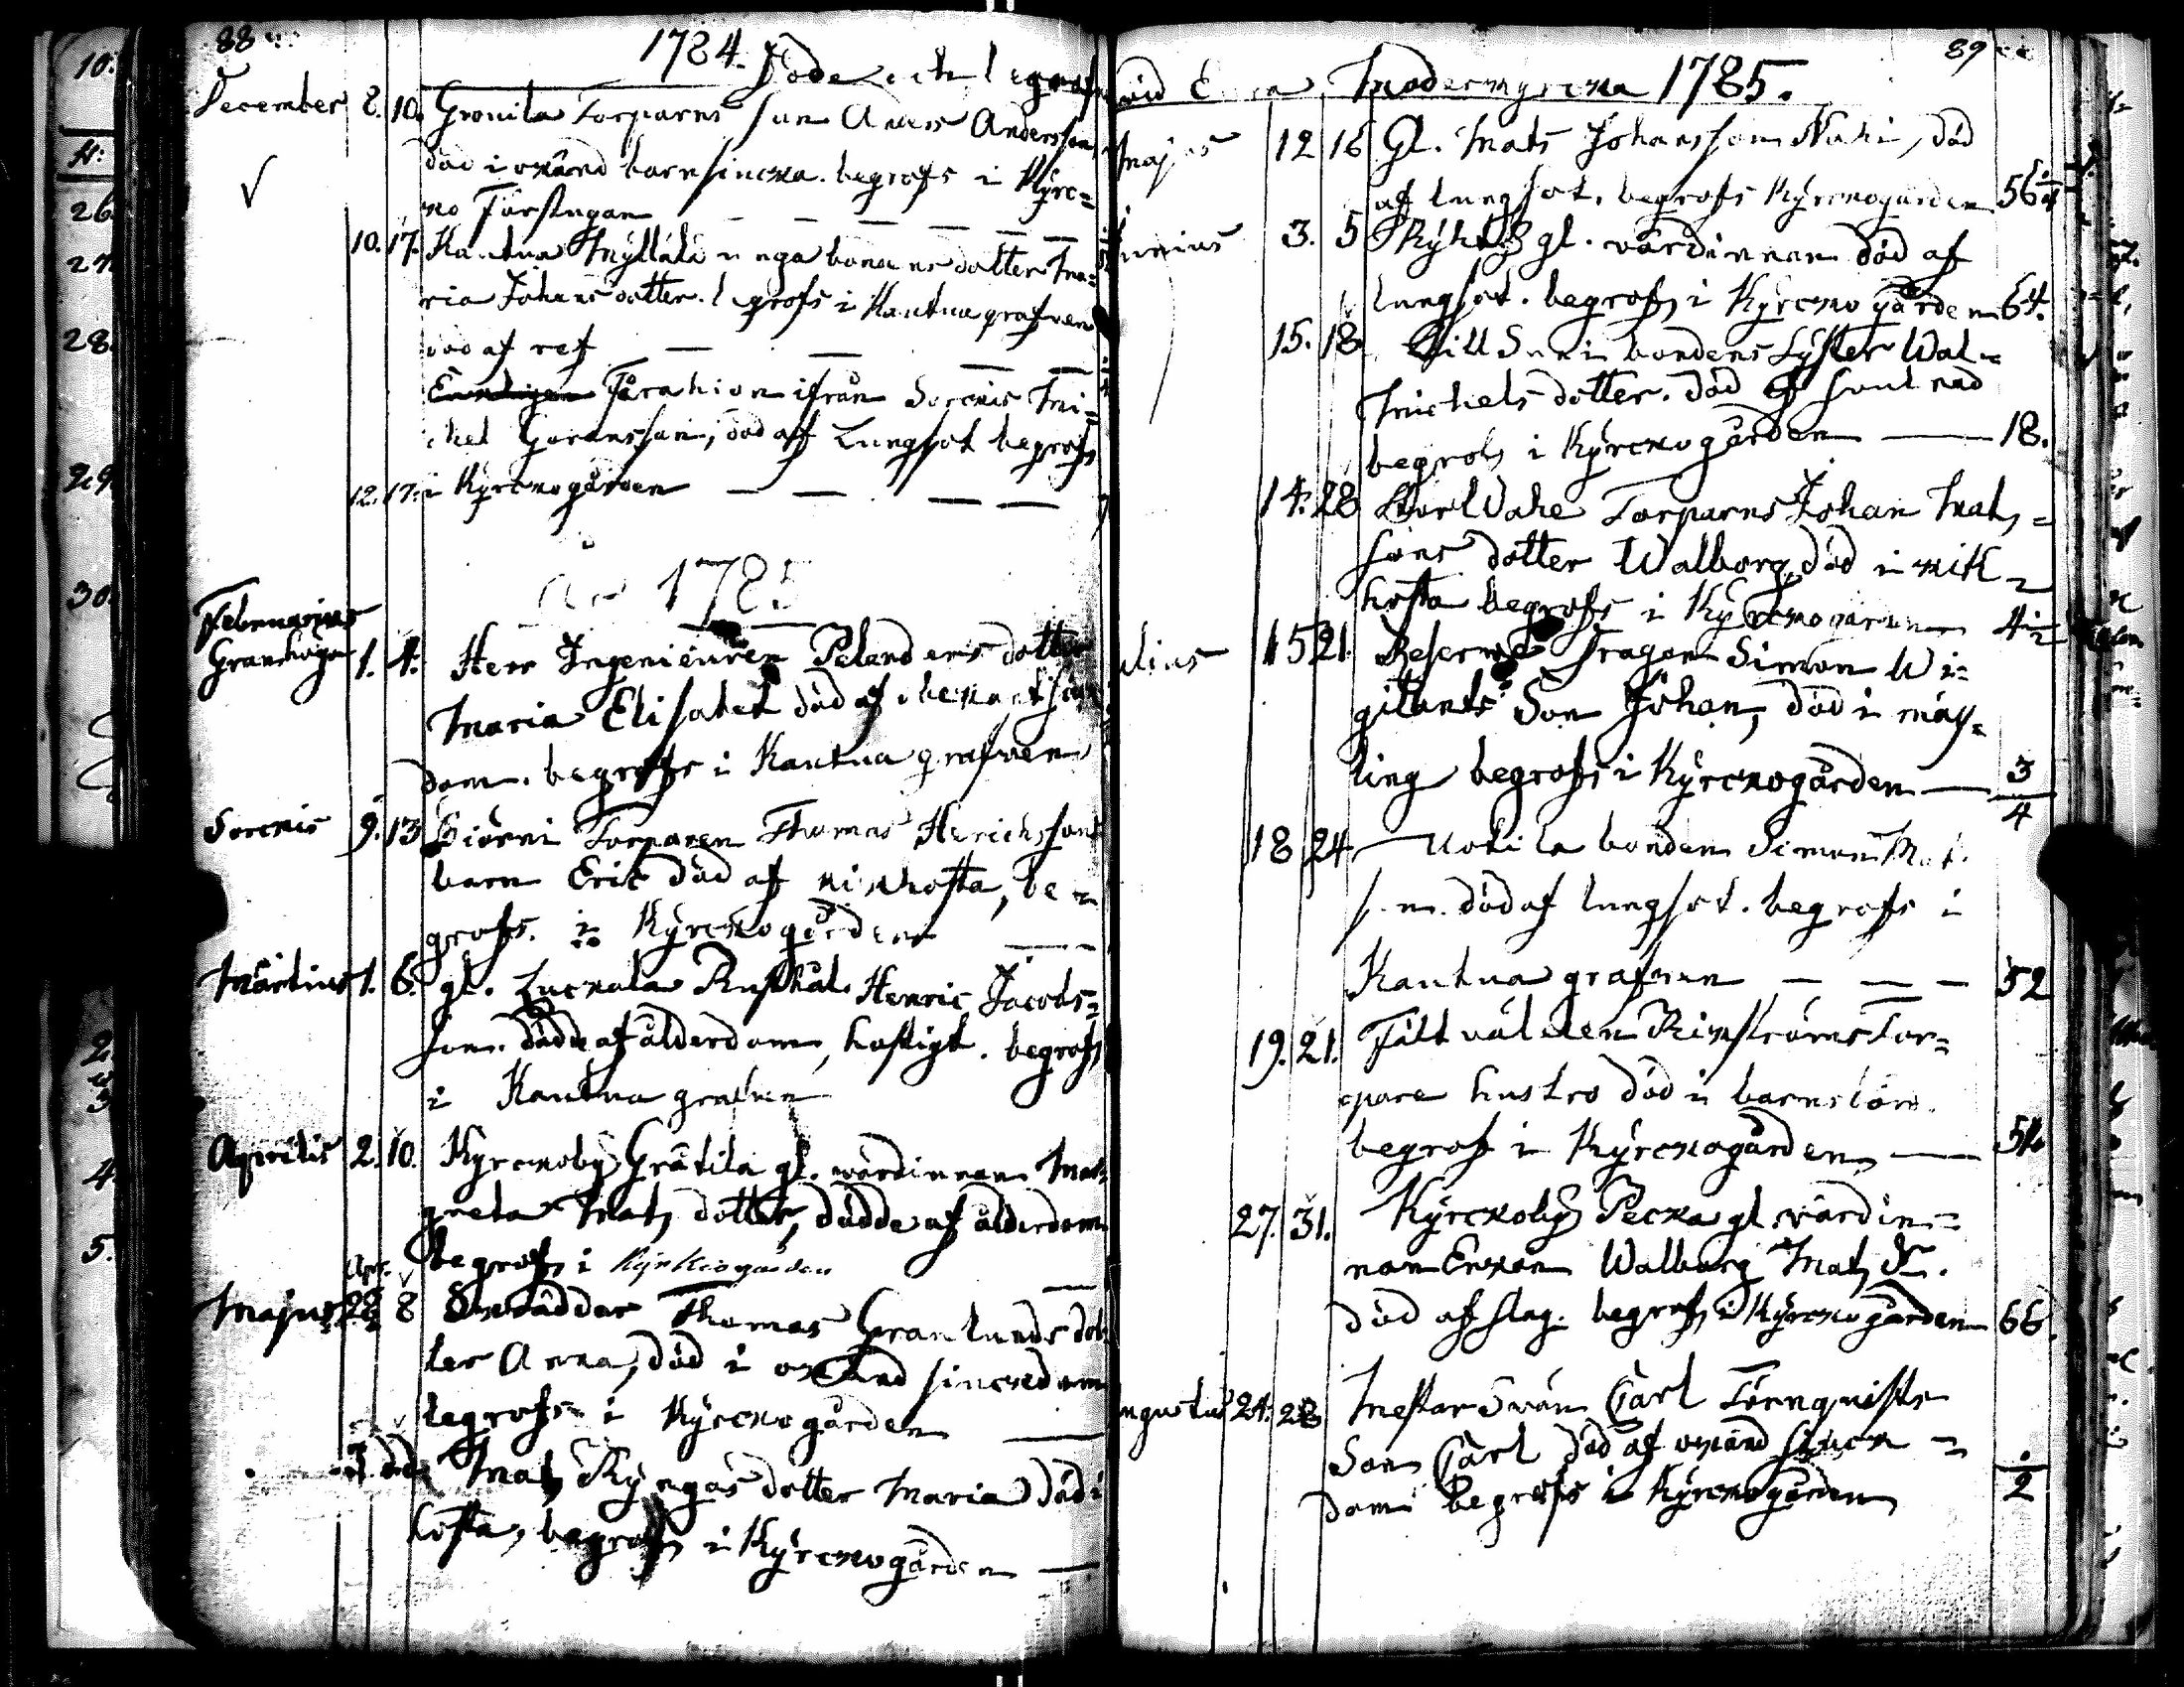 88
1784. Döde och begrafne
December 8. 10. Gronila Torparns son Anders Andersson,
död i okänd barnsjucka. begrofs i Kyrc=
ko Förstugan
10. 17. Kautua Myllälä unga bondens dotter Ma=
ria Johansdotter. begrofs i Kautua grafven
död af ref
Färahion ifrån Sorckis Mi=
chel Göransson, död af Lungsot begrofs
12. 17. i Kyrckogården
1785
Februarius
1. 4. Herr Ingenieuren Pelanders dotter
Maria Elisabet död af obekant siuk
dom. begrofs i Kautua grafven
Sorckis 9. 13 Biörni Torparen Thomas Henrichsons
barn Eric död af kikhosta, be=
grofs. i Kyrckogården
Martius 1. 6. gl. Luckola Rusthål. Henric Jacobs=
son. dödde af ålderdom, hastigt. begrofs
i Kautua grafven
Aprilis 2. 10. Kyrckoby Gråtila gl. wärdinnan Mar
greta Mats dotter, dödde af ålderdom
begrofs i Kyrkiogården
Apr.
Majus 28 8 Skräddar Thomas Granlunds dot
ter Anna, död i okänd siuckdom
begrofs i Kyrckogården
Mats Kyngäs dotter Maria död i
hosta, begrofs i Kyrckogården
89
wid Eura Moderkyrcka 1785.
Majus 12 16 Gl. Mats Johansson Nuhi, död
af lungsot. begrofs Kyrckogården 56
Junius 3. 5 gl. wärdinnan död af
lungsot. begrofs i Kyrcko gården 64.
15. 18. bondens Syster Wal=
Michels dotter. död af
begrofs i Kyrckogården 18.
14. 28 Torparns Johan Mats=
sons dotter Walborg, död i kik=
hosta begrofs i Kyrckogården
Julius 15 21. Reserwe Dragon Simon Wi=
gilants Son Johan, död i mäss=
ling begrofs i Kyrckogården 3/4
18 24 Uotila bonden Simon Mat.
s. n. död af lungsot. begrofs i
Kautua grafven 52
19. 21. Fältwäbelen Rinströms Tor=
pare hustro död i barnsbörd.
begrofs i Kyrckogården
27. 31. Kyrckoby Pecka gl. wärdin=
nan Enkan Walborg Mats Dr.
död af slag. begrofs i Kyrckogården 66.
Augustus 24. 28 Mästar Swän Carl Törnqwists
Son Carl död af okänd siuck=
dom begrofs i Kyrckogården 2